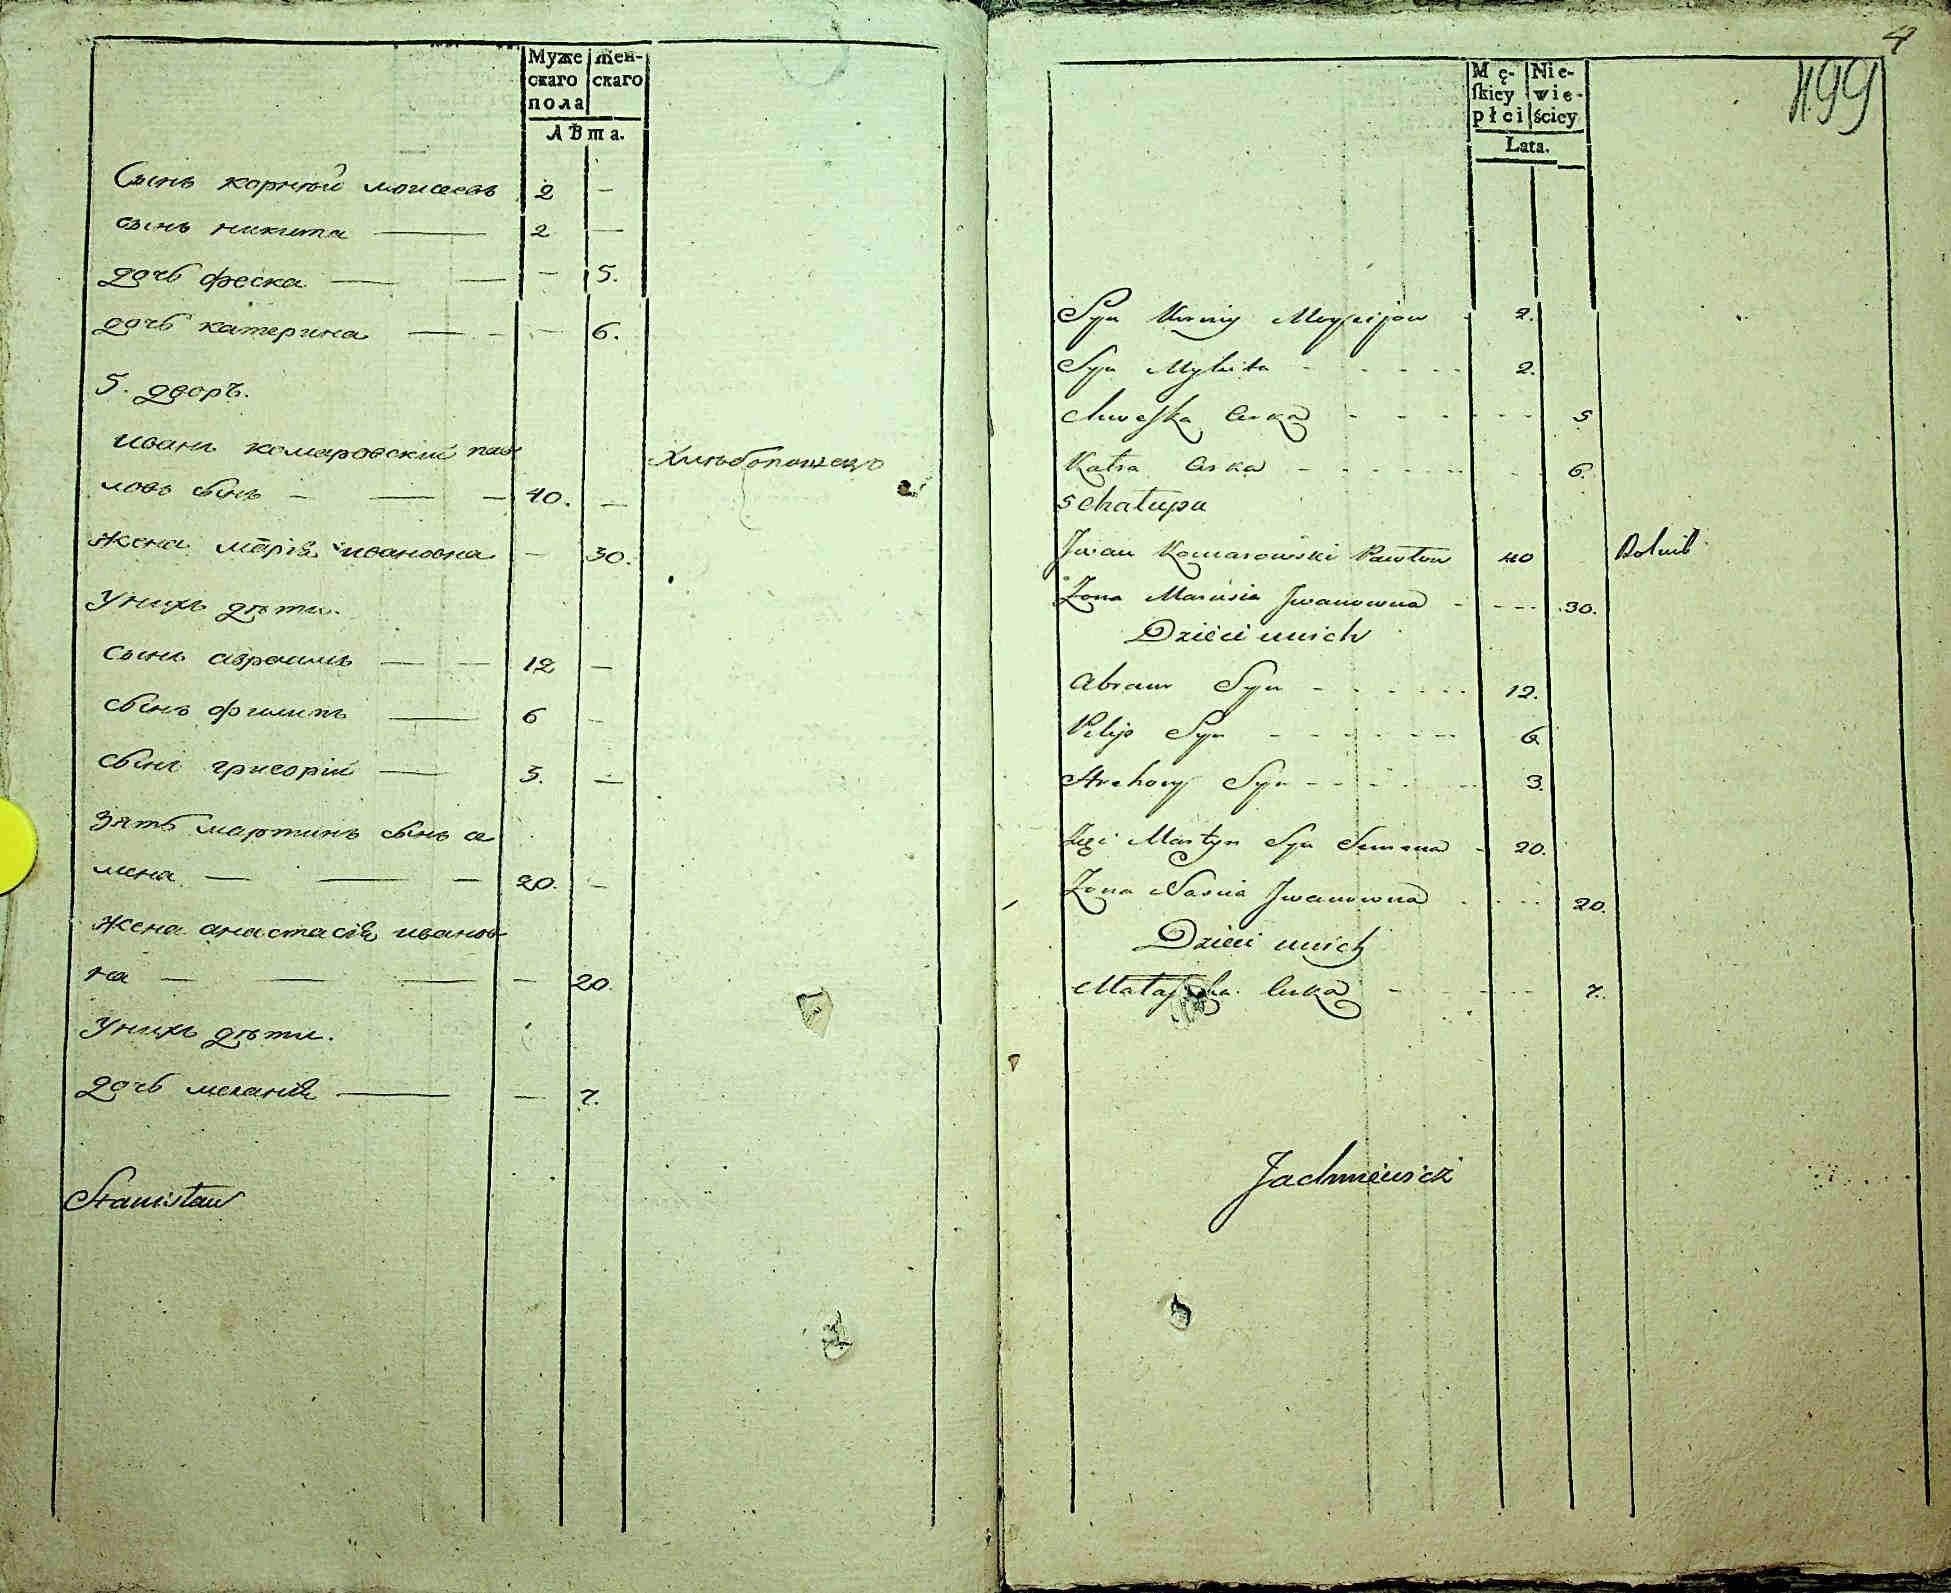 Муже Жен-
скаго скаго
пола
Лѣта.
Сынъ корній моисеевъ 2 —
сынъ никита — 2 —
дочь феска — — — 5.
дочь катерина — — — 6.
5. дворъ.
иванъ комаровскій пав Хлѣбопашецъ
ловъ сынъ — — — 40. —
жена марія ивановна — 30.
унихъ дѣти.
сынъ авраамъ — — 12 —
сынъ филипъ — 6 —
сынъ григорій — 3. —
зять мартинъ сынъ се
мена — — — 20. —
жена анастасія иванов
на — — — — 20.
унихъ дѣти.
дочь меланія — — 7.
Stanisław
4
499
Mę- Nie-
skiey wie-
płci ściey
Lata.
Syn Korniy Moysijow 2.
Syn Mykita - - - - 2.
Curka - - - - - - 5
Katra Curka - - - - - - 6.
5 Chałupa
Jwan Komarowski Pawłow 40 Rolnik
Żona Marusia Jwanowna - - - - 30.
Dzieci unich
Abram Syn - - - - - 12.
Pilip Syn - - - - - - 6
Hrehory Syn - - - - - 3.
Zięć Martyn Syn Semena - 20.
Żona Nascia Jwanowna - - - - 20.
Dzieci unich
Curka - - - - - 7.
Jachniewicz